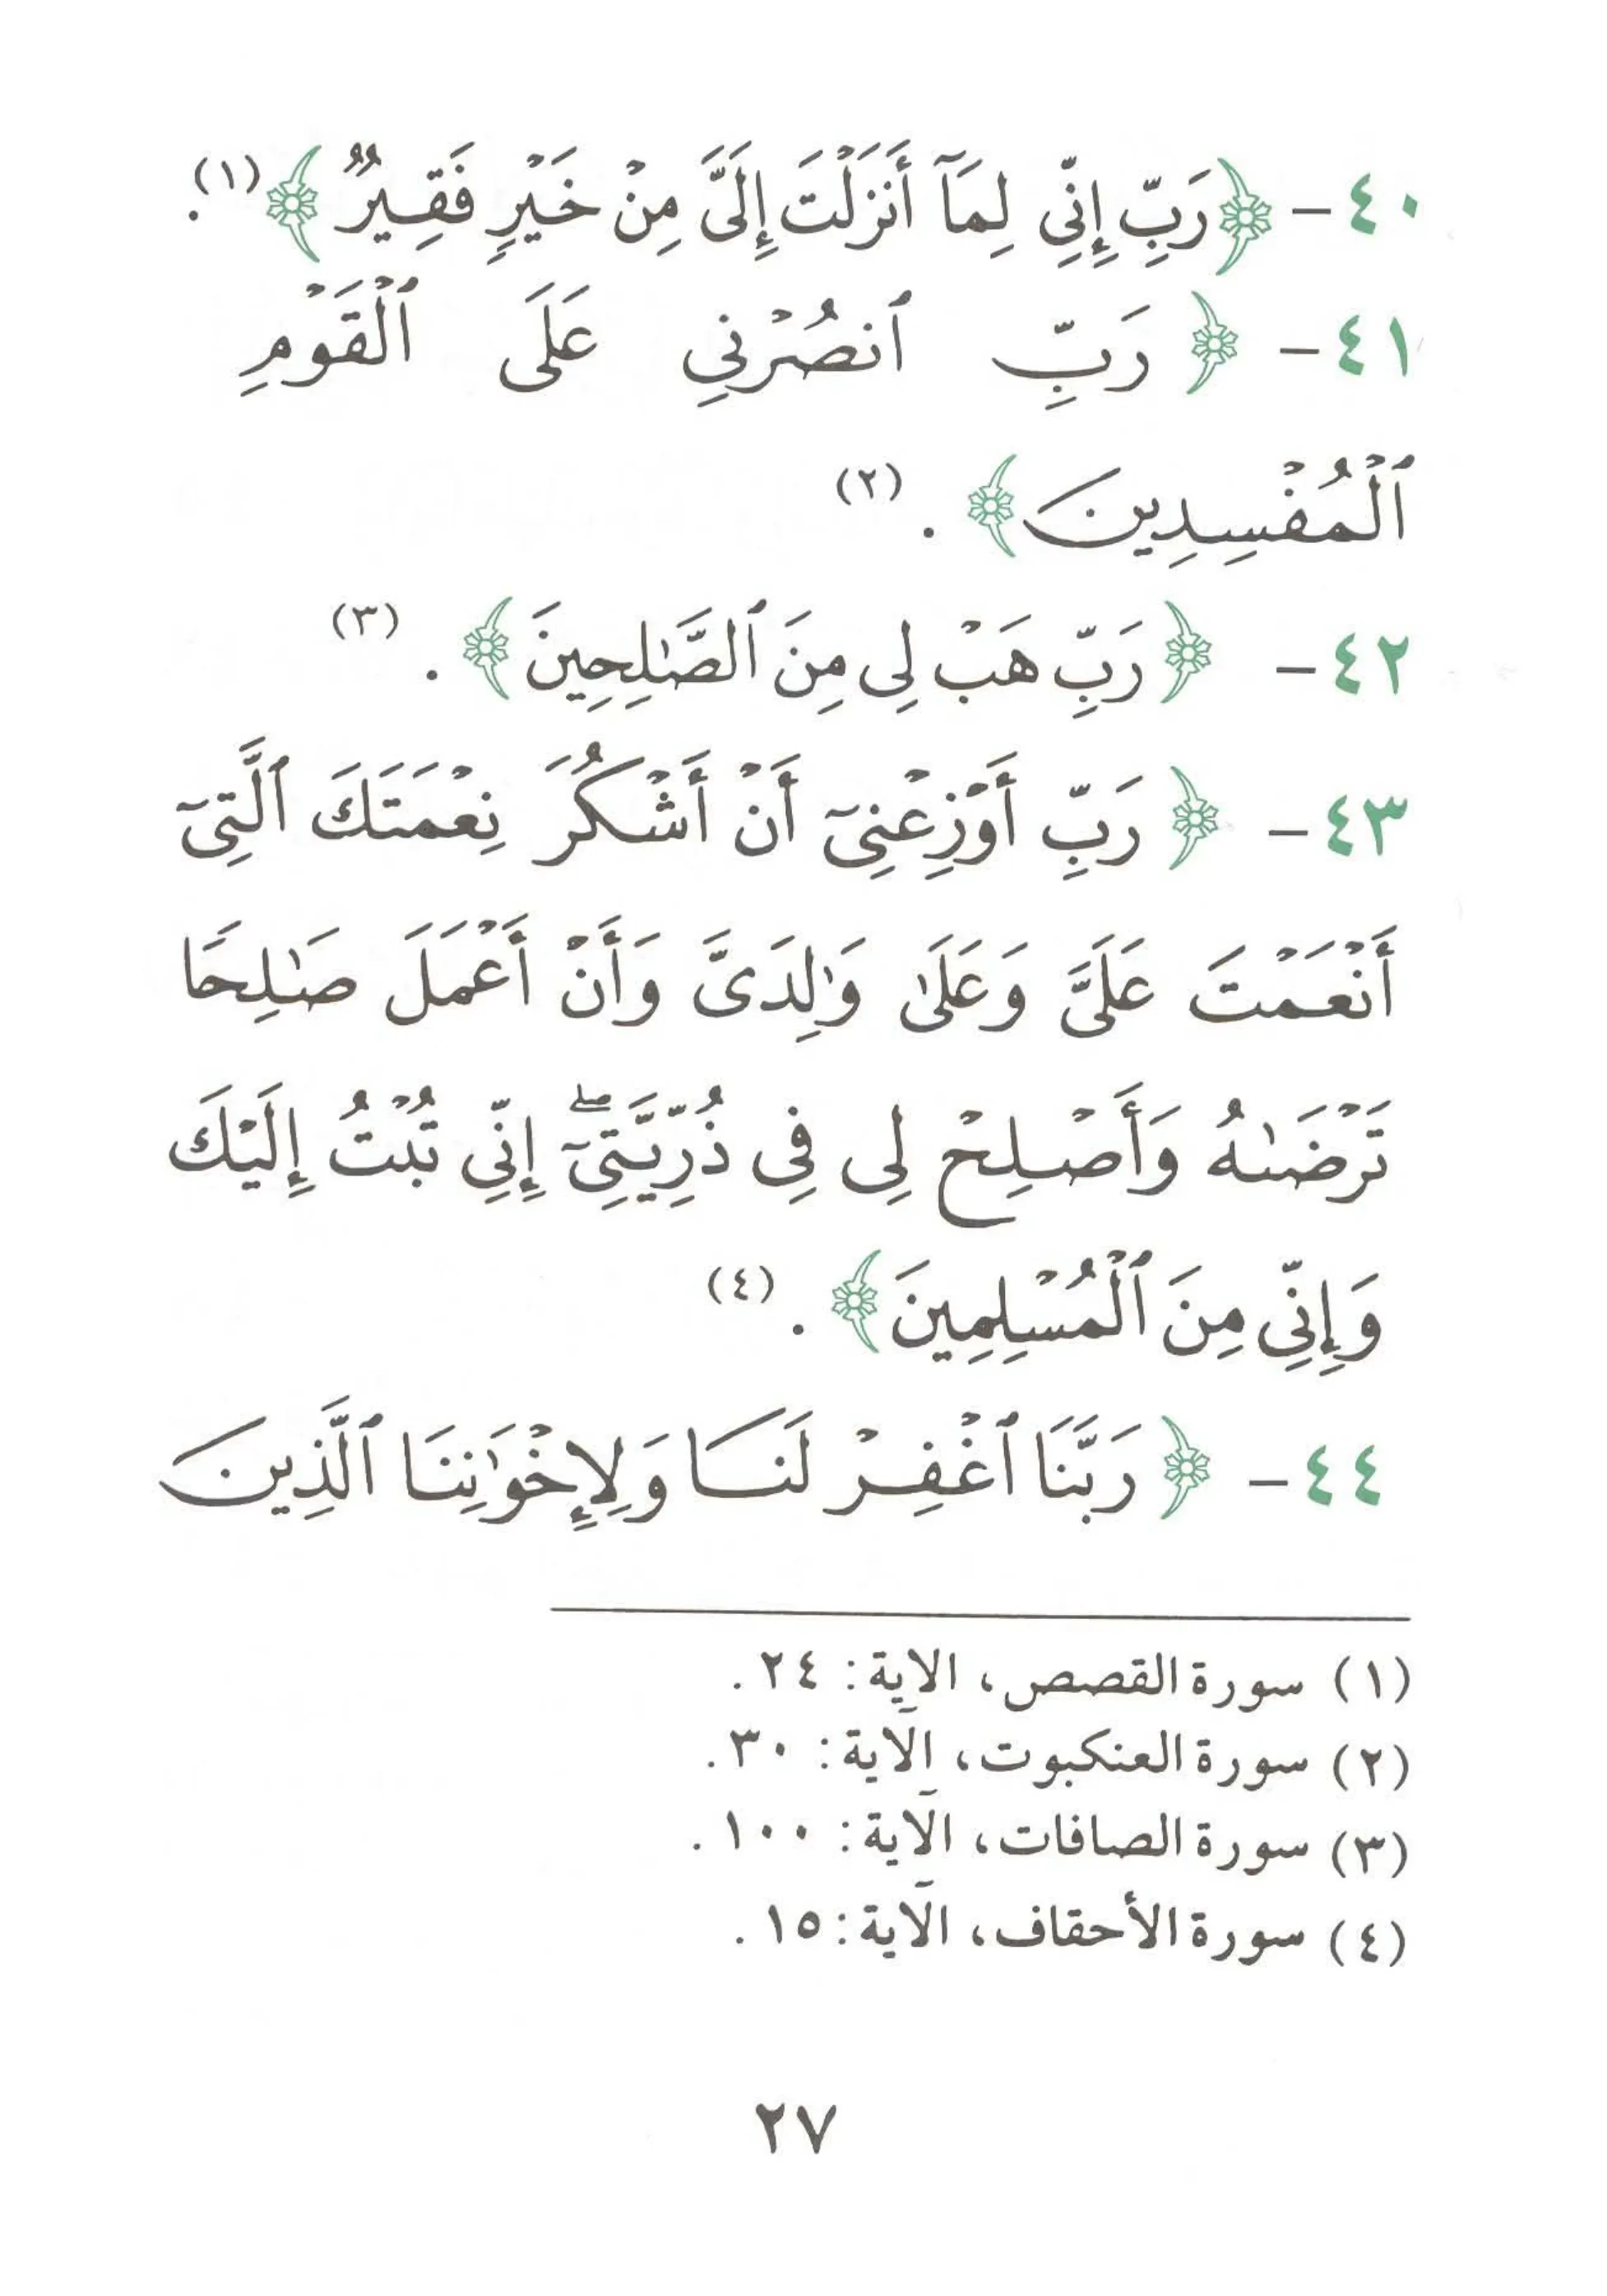 ٤٠- ﴿رَبِّ إِنِّي لِمَآ أَنزَلْتَ إِلَىَّ مِنْ خَيْرٍ فَقِيرٌ﴾(١).
٤١- ﴿رَبِّ ٱنصُرْنِي عَلَى ٱلْقَوْمِ
ٱلْمُفْسِدِينَ﴾.(٢)
٤٢- ﴿رَبِّ هَبْ لِى مِنَ ٱلصَّٰلِحِينَ﴾.(٣)
٤٣- ﴿رَبِّ أَوْزِعْنِىٓ أَنْ أَشْكُرَ نِعْمَتَكَ ٱلَّتِىٓ
أَنْعَمْتَ عَلَىَّ وَعَلَىٰ وَٰلِدَىَّ وَأَنْ أَعْمَلَ صَٰلِحًا
تَرْضَىٰهُ وَأَصْلِحْ لِى فِى ذُرِّيَّتِىٓ ۖ إِنِّي تُبْتُ إِلَيْكَ
وَإِنِّي مِنَ ٱلْمُسْلِمِينَ﴾.(٤)
٤٤- ﴿رَبَّنَا ٱغْفِرْ لَنَا وَلِإِخْوَٰنِنَا ٱلَّذِينَ
(١) سورة القصص، الآية: ٢٤.
(٢) سورة العنكبوت، الآية: ٣٠.
(٣) سورة الصافات، الآية: ١٠٠.
(٤) سورة الأحقاف، الآية: ١٥.
٢٧